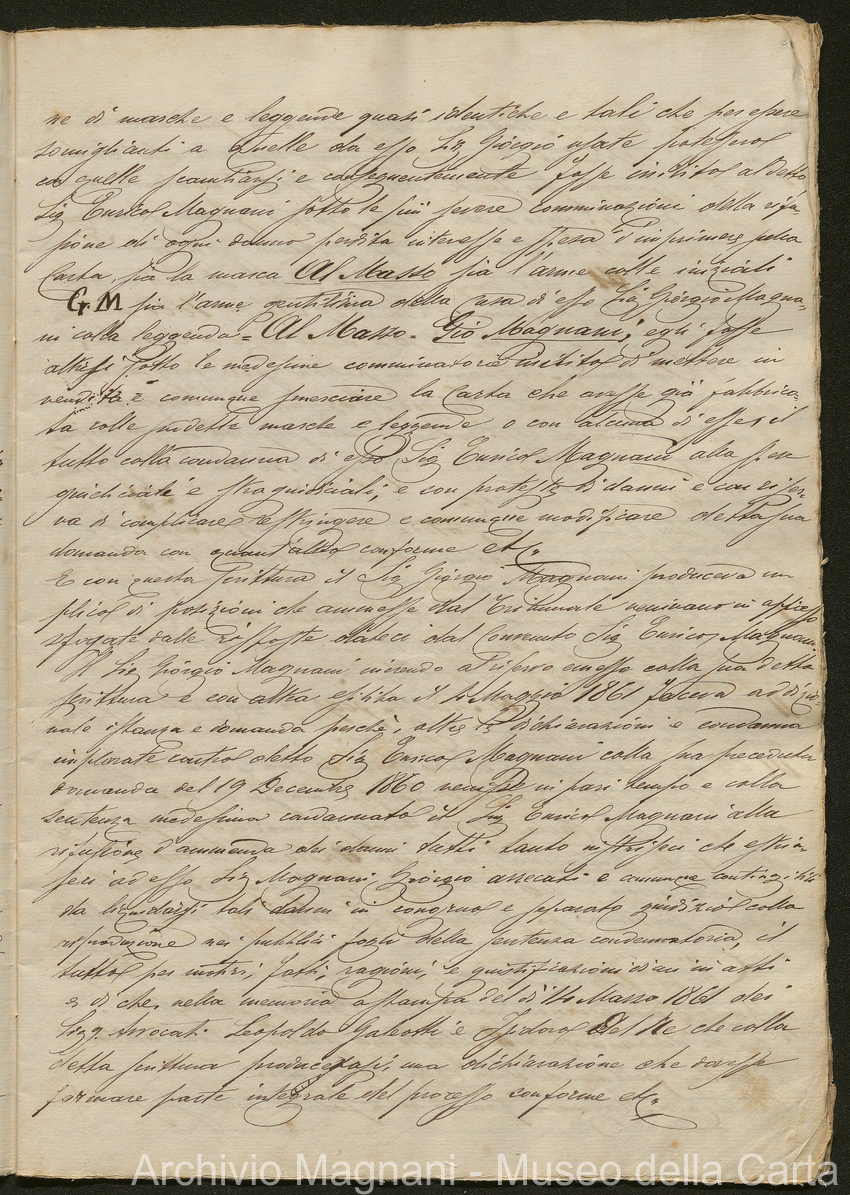 re di marche e leggende quasi identiche e tali che per essere
somiglianti a quelle da esso Sig Giorgio usate potessero
con quelle scambiarsi; e conseguentemente fosse inibito al detto
Sig Enrico Magnani sotto le più severe comminazioni della rifu
sione di ogni danno perdita interesse e spesa d'imprimere sulla
Carta, sia la marca Al Masso sia l'arme colle iniziali
G. M sia l'arme gentilizia della Casa di esso Sig Giorgio Magna=
ni colla leggenda = Al Masso - Gio Magnani; egli fosse
altresì sotto le medesime comminatorie inibito di mettere in
vendita e comunque smerciare la Carta che avesse già fabbrica=
ta colle suddette marche e leggende o con alcuna di esse, il
tutto colla condanna di esso Sig Enrico Magnani alle spese
giudiciali e stragiudiciali, e con proteste di danni e con riser=
va di amplicare restringere e comunque modificare detta sua
domanda con quant'altro conforme etc.
E con questa Scrittura il Sig Giorgio Magnani produceva un
plico di posizioni che ammesse dal Tribunale venivano in appresso
sfogate dalle risposte dateci dal Convenuto Sig Enrico Magnani
Il Sig Giorgio Magnani inerendo a riservo emesso colla sua detta
scrittura e con altra esibita il 4 Maggio 1861 faceva addizio=
nale istanza e domanda perchè, oltre le dichiarazioni e condanna
implorate contro detto Sig Enrico Magnani colla sua precedente
domanda del 19 Decembre 1860 venisse in pari tempo e colla
sentenza medesima condannato il Sig Enrico Magnani alla
rifusione d'ammenda dei danni tutti tanto intrinseci che estrin=
seci ad esso Sig Magnani Giorgio arrecati e comunque contingibili
da liquidarsi tali danni in congruo e separato giudizio colla
riproduzione nei pubblici fogli della sentenza condennatoria, il
tutto per motivi, fatti, ragioni, e giustificazioni di cui in atti
e di che nella memoria a stampa del dì 14 Marzo 1861 dei
Sigg. Avvocati Leopoldo Galeotti e Isidoro Del Re che colla
detta scrittura producevasi, una dichiarazione che dovesse
formare parte integrale del processo conforme etc.
Archivio Magnani - Museo della Carta